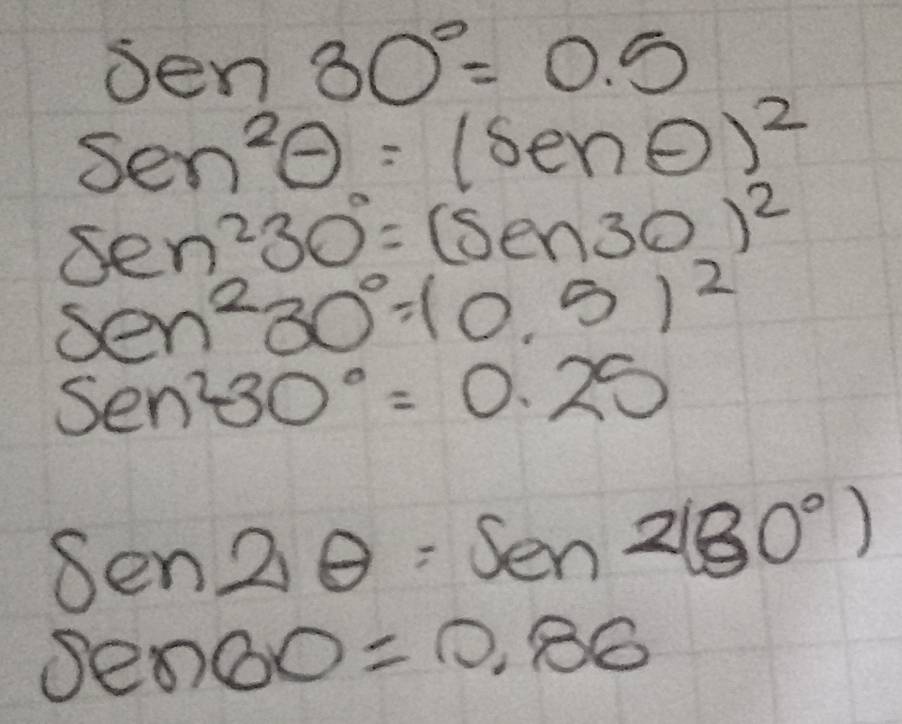 Sen 30° = 0.5
Sen²θ = (Sen θ)²
Sen²30° = (Sen30)²
Sen²30° = (0.5)²
Sen²30° = 0.25
Sen 2θ = Sen 2(30°)
Sen60 = 0.86